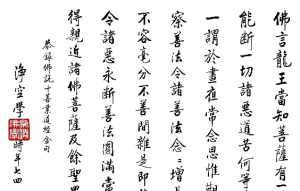 佛言龍王當知菩薩有一
能斷一切諸惡道苦何等
一謂於晝夜常念思惟觀
察善法令諸善法念念增長
不容毫分不善間雜是即
令諸惡永斷善法圓滿常
得親近諸佛菩薩及餘聖
恭錄佛說十善業道經金句
淨空學
時年七四